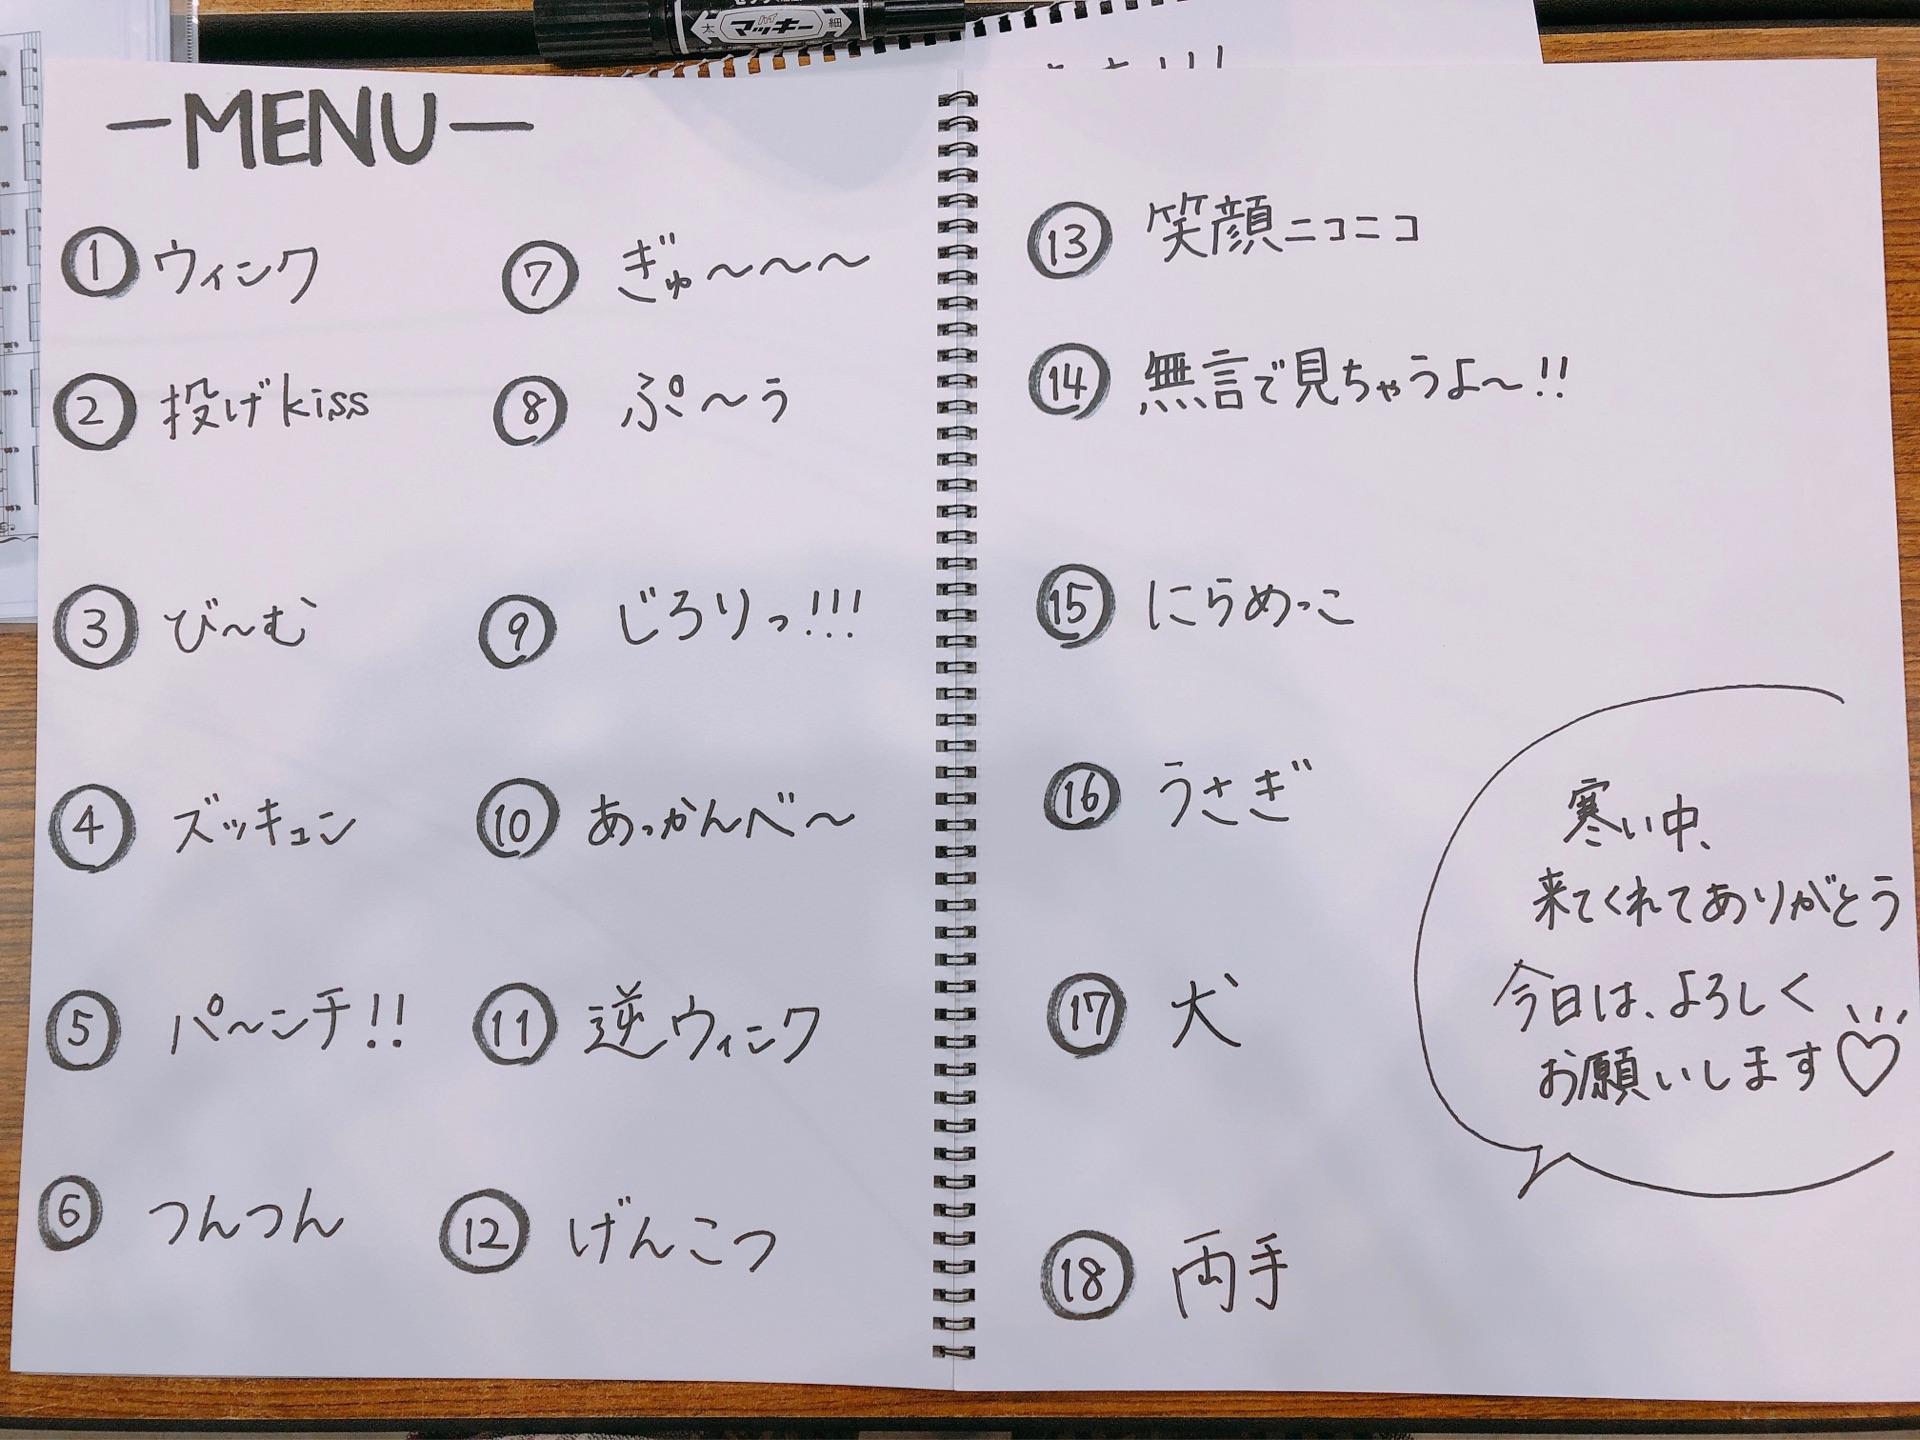 マッキー
太
細
-MENU-
① ウィンク
② 投げkiss
③ び〜む
④ ズッキュン
⑤ パ〜ンチ!!
⑥ つんつん
⑦ ぎゅ〜〜〜
⑧ ぷ〜う
⑨ じろりっ!!!
⑩ あっかんべ〜
⑪ 逆ウィンク
⑫ げんこつ
⑬ 笑顔ニコニコ
⑭ 無言で見ちゃうよ〜!!
⑮ にらめっこ
⑯ うさぎ
⑰ 犬
⑱ 両手
寒い中、
来てくれてありがとう
今日は、よろしく
お願いします♡